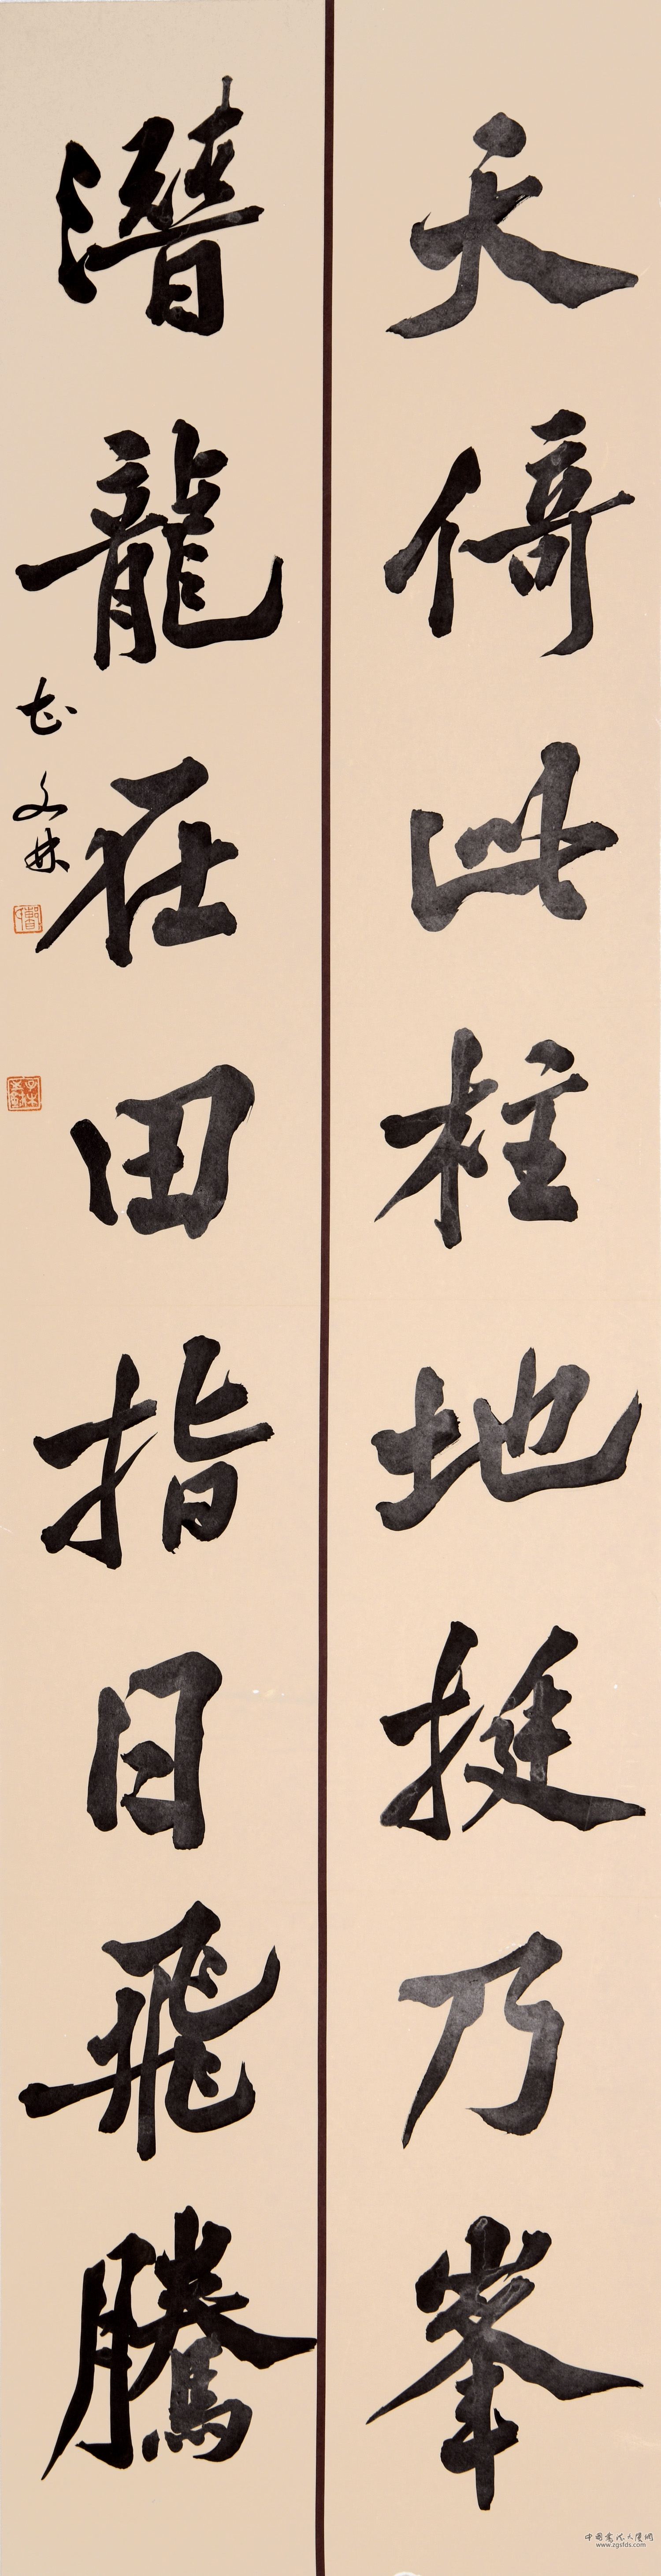 天倚此柱地挺乃峯
潛龍在田指日飛騰
文林
中国书法大厦网
www.zgsfds.com